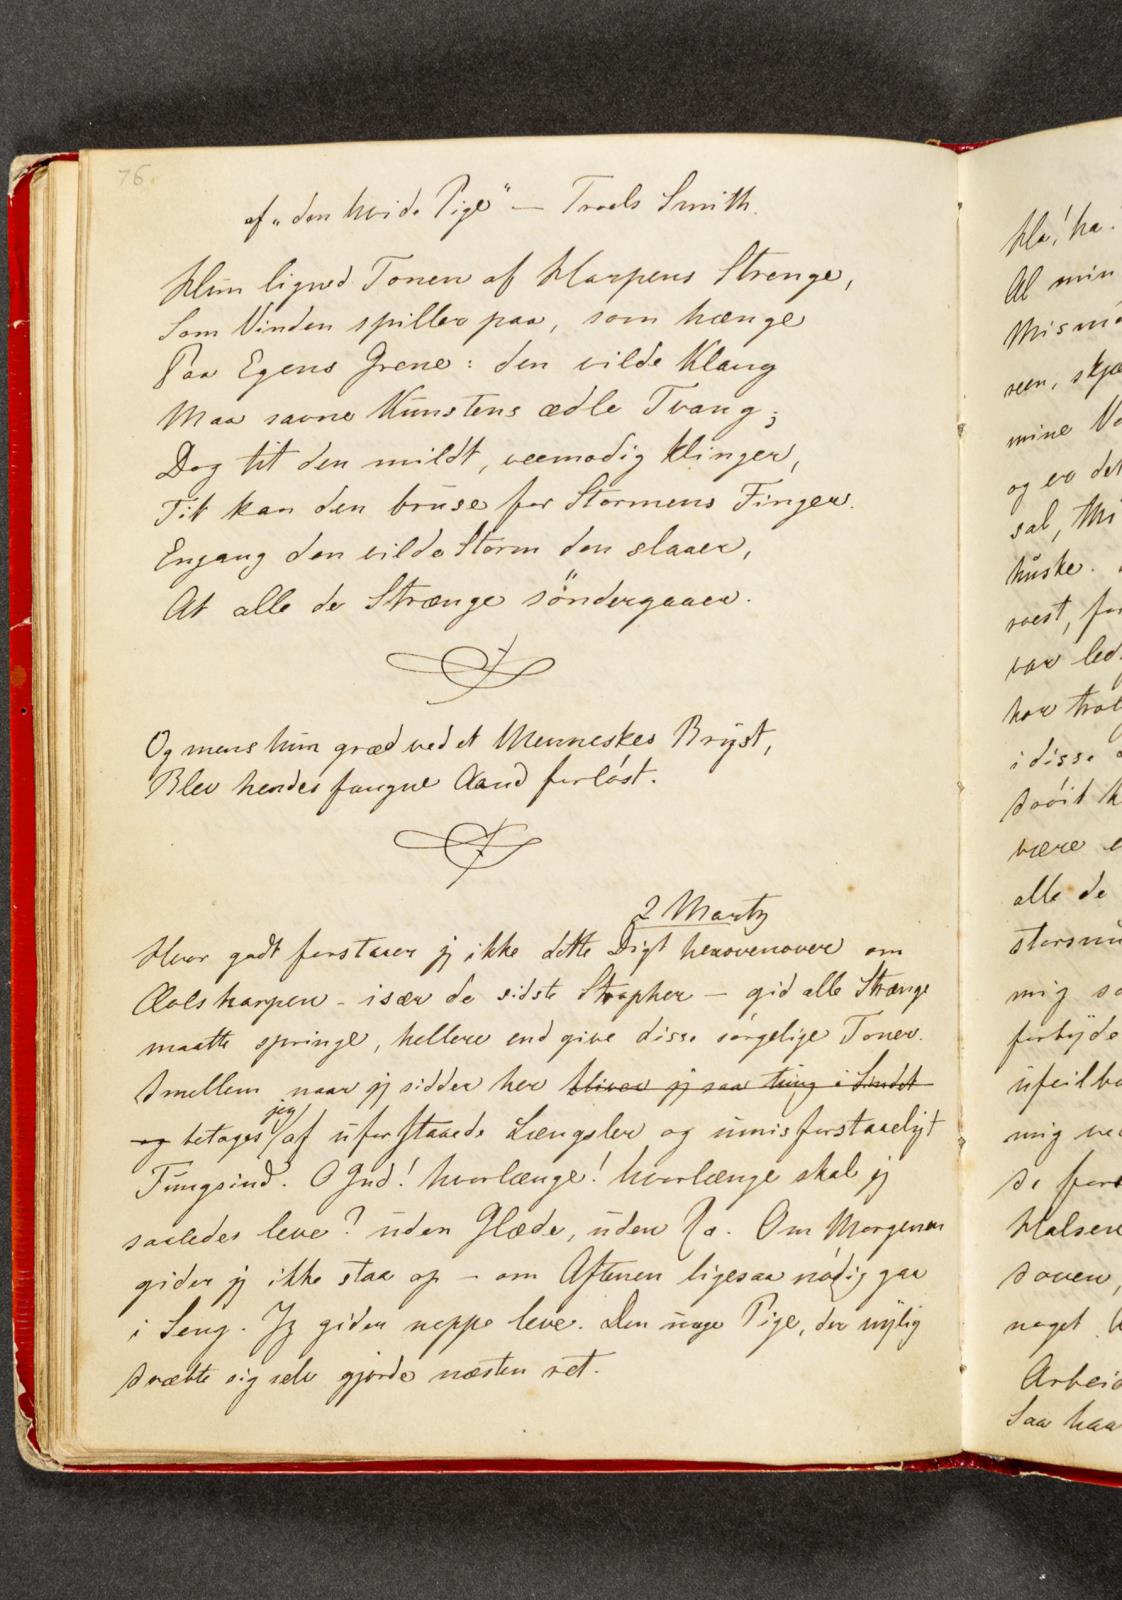 76.
af „den hvide Pige“ — Troels Smith.
Hun ligned Tonen af Harpens Strenge,
Som Vinden spiller paa, som hænge
Paa Egens Grene: den vilde Klang
Maa savne Kunstens ædle Tvang;
Dog tit den mildt, veemodig klinger,
Tit kan den bruse for Stormens Finger.
Engang den vilde Storm den slaaer,
At alle de Strænge söndergaaer.
Og mens hun græd ved et Menneskes Bryst,
Blev hendes fangne Aand forløst.
2 Marts
Hvor godt forstaaer jeg ikke dette Digt herovenover om
Æolsharpen – især de sidste Stropher – gid alle Strænge
maatte springe, hellere end give disse sørgelige Toner.
Imellem naar jeg sidder her bliver jeg saa tung i Sindet
og betages jeg af uforstaaede Længsler og umisforstaaeligt
Tungsind. O Gud! hvorlænge! hvorlænge skal jeg
saaledes leve? uden Glæde, uden Ro. Om Morgenen
gider jeg ikke staa op – om Aftenen ligesaa nødig gaa
i Seng. Jeg gider neppe leve. Den unge Pige, der nylig
dræbte sig selv gjorde næsten ret.
Ha! ha.
Al min
reen,
mine
og er det
sal,
huske.
var
har
i disse
være
alle de
mig
mig
Halsen
noget
Saa